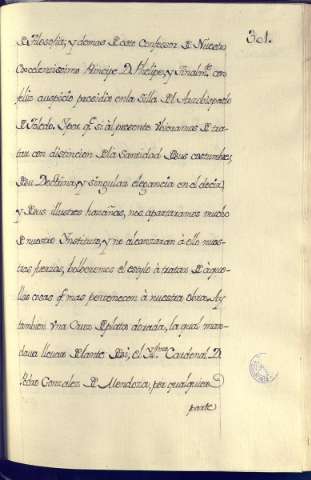 301.
D Filosofia, y demas D coro Confessor D Nuestro
Excelentissimo Principe D. Phelipe, y finalmte. con
feliz auspicio presidio en la Silla Del Arzobispado
D Toledo. Ypor q̃ si al presente D tra-
tar con distincion D la Santidad D sus costumbres,
D su Doctrina, y singular elegancia en el decir,
y D sus illustres hazañas, nos apartaramos mucho
D nuestro Instituto, y ne alcanzaran à ello nues-
tras fuerzas, bolveremos el estylo à tratar D aque-
llas cosas q̃ mas pertenecen à nuestra obra. Ay
tambien Vna Cruz D plata dorada, la qual man-
dava llevar D lante D si, el Cardenal D.
Pedro Gonzalez D Mendoza, por qualquiera
parte